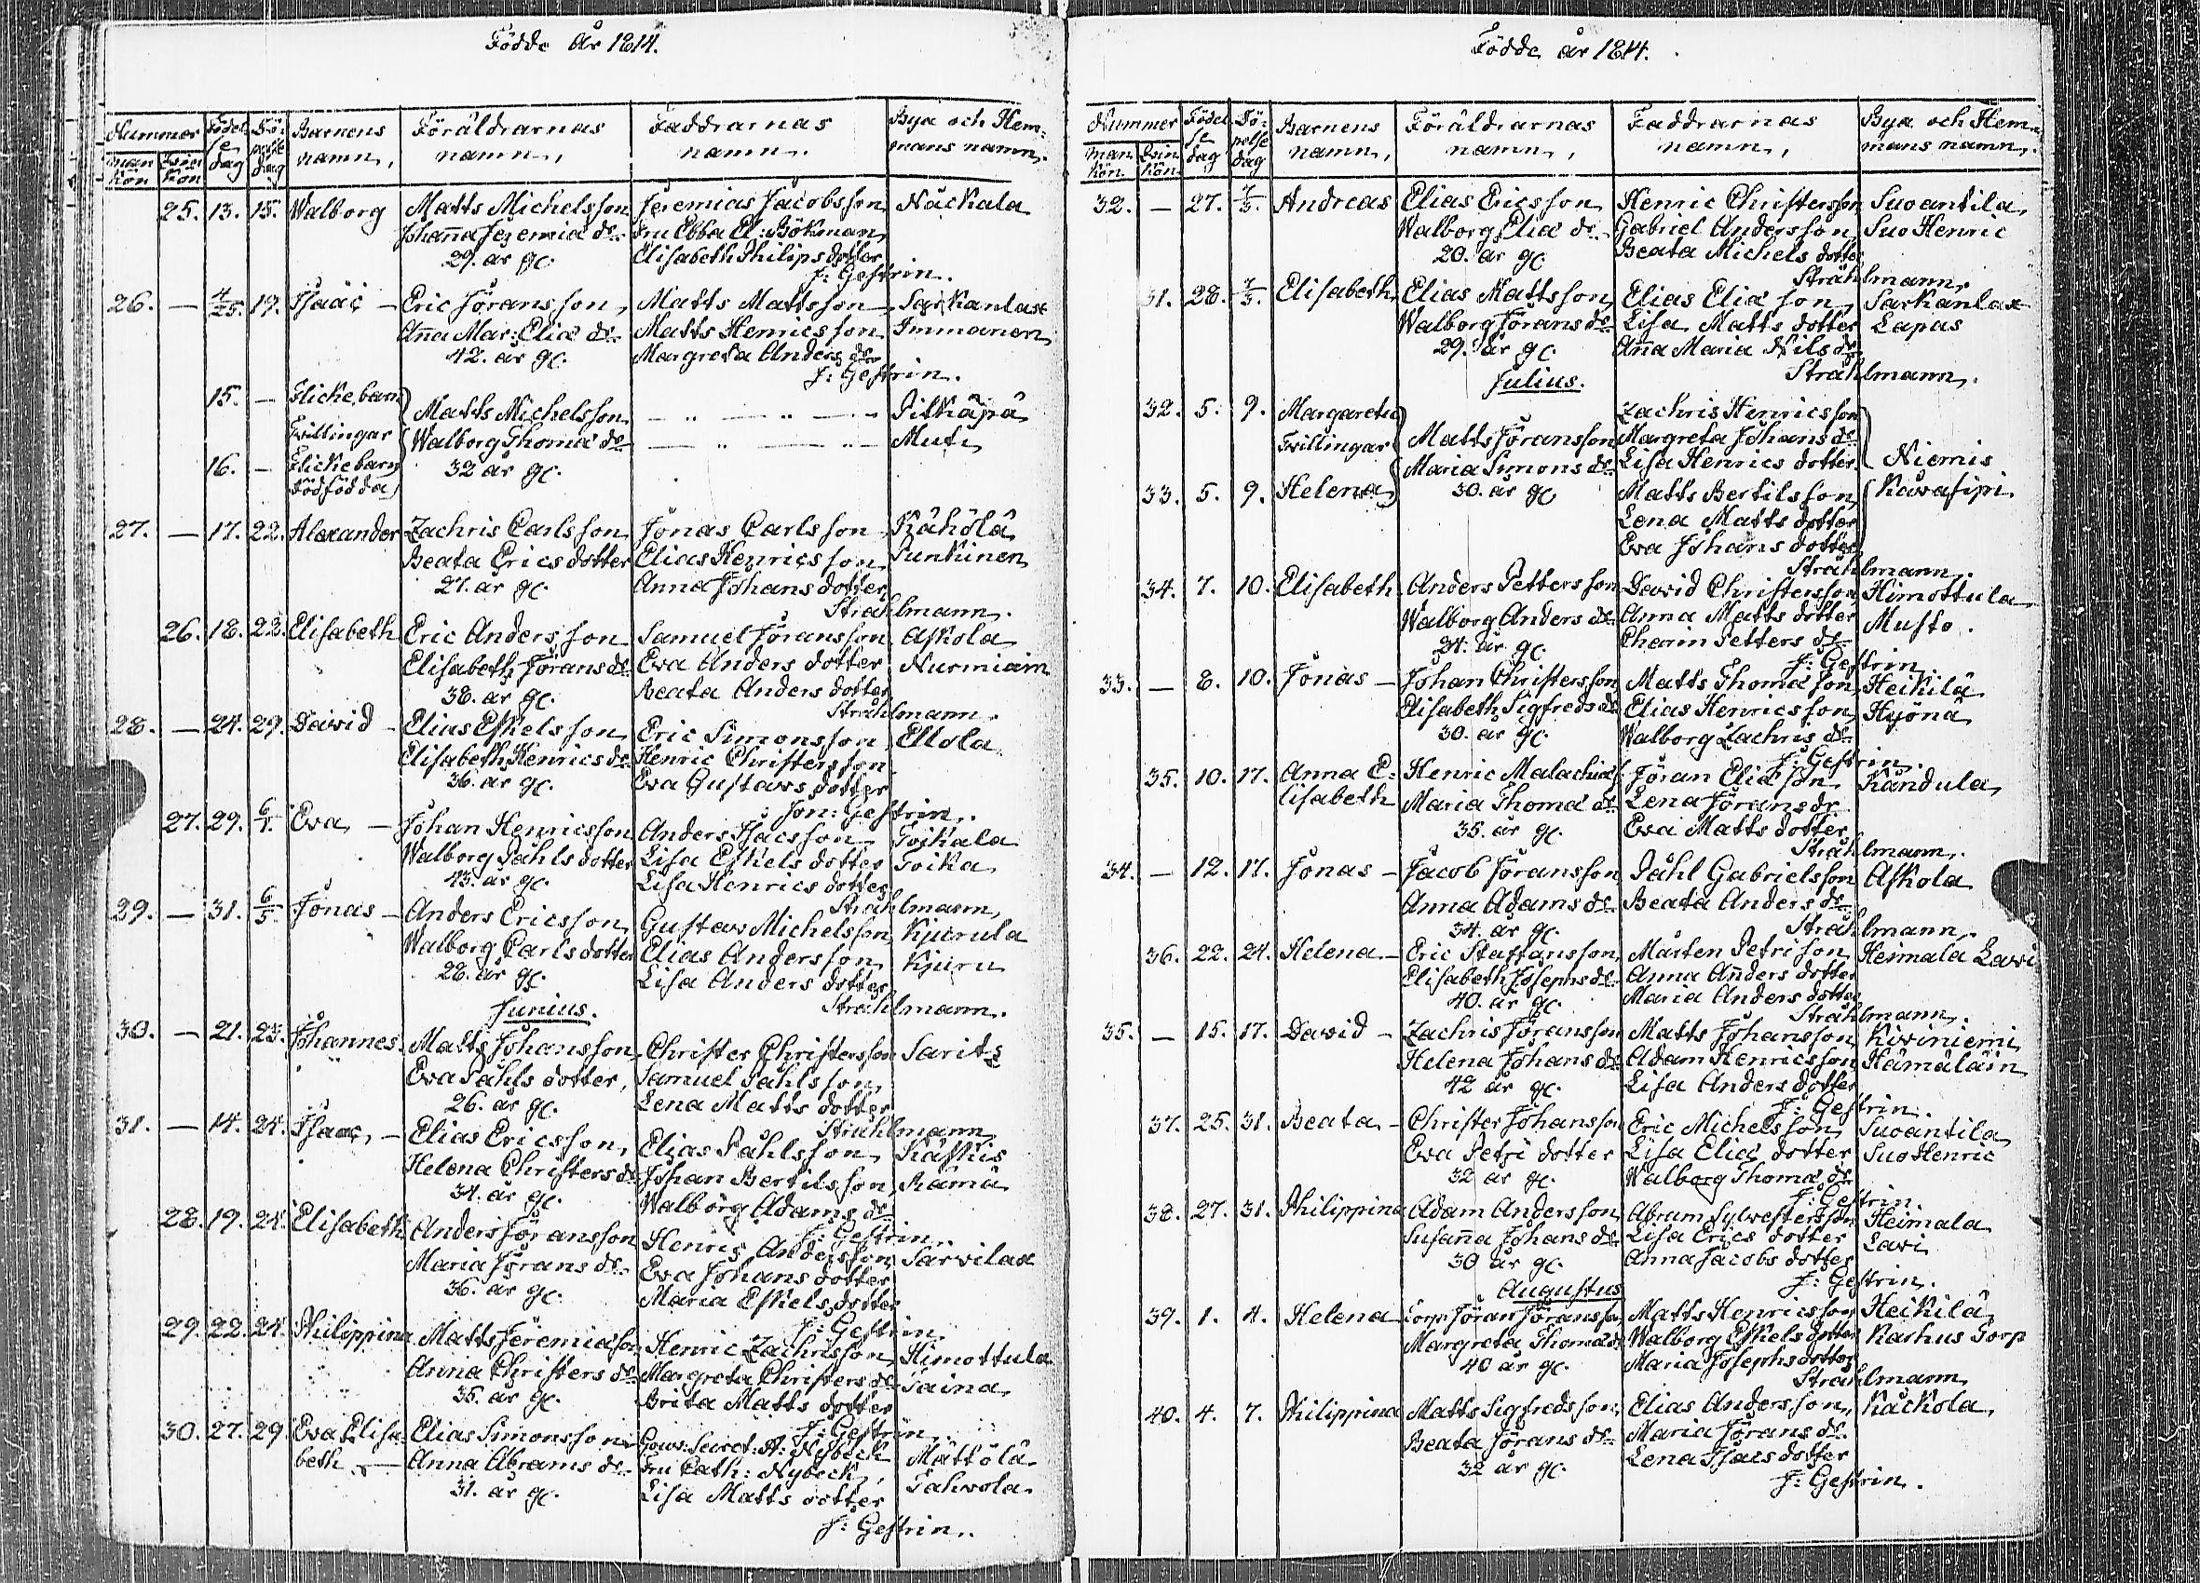 Födde år 1814.
Nummer Födelse dag Döpelse dag Barnens namn, Föräldrarnas namn, Faddrarnas namn. Bya och Hemmans namn.
man kön qvin kön
25. 13. 15. Walborg Matts Michelsson Jeremias Jacobsson Näckala
Johaña Jeremiæ dr. Fru Ebba El: Bökman
29. år gl. Elisabeth Philips dotter
J: Gestrin.
26. — 4/25. 17. Isaac — Eric Göransson, Matts Mattsson Särkanlax
Aña Mar: Eliæ dr. Matts Henricsson Immonen
42. år gl. Margreta Anders dr
J: Gestrin.
15. — Flickebarn Matts Michelsson — " — " — Pitkäpä
Tvillingar Walborg Thomæ dr — " — " — Muti
16. — Flickebarn 32 år gl.
dödfödda
27. — 17. 22. Alexander Zachris Carlsson Jonas Carlsson Kähölä
Beata Erics dotter Elias Henricsson Sunkinen
27. år gl. Anna Johans dotter
Strahlmann.
26. 18. 23. Elisabeth Eric Andersson Samuel Göransson Askola
Elisabeth Görans dr Eva Anders dotter Nurmiain
38. år gl. Beata Anders dotter
Strahlmann.
28. — 24. 29. David — Elias Eskelsson Eric Simonsson Ellola
Elisabeth Henrics dr. Henric Christersson
36. år gl. Eva Gustavs dotter
Jon: Gestrin.
27. 29. 6/1. Eva — Johan Henricsson Anders Isacsson Toikala
Walborg Påhls dotter Lisa Eskels dotter Toika
43. år gl. Lisa Henrics dotter
Strahlmann.
29. — 31. 6/5. Jonas — Anders Ericsson Gustav Michelsson Kjurula
Walborg Carls dotter Elias Andersson Kjuru
28. år gl. Lisa Anders dotter
Junius. Strahlmann.
30. — 21. 23. Johannes. Matts Johansson Christer Christersson Sarits
Eva Påhls dotter, Samuel Påhlsson
26. år gl. Lena Matts dotter
Strahlmann.
31. — 14. 24. Isaac, — Elias Ericsson, Elias Påhlsson Käskis
Helena Christers dr Johan Bertilsson Rämä
34. år gl. Walborg Adams dr
J: Gestrin.
28. 19. 24. Elisabeth Anders Göransson Henric Andersson Sarvilax
Maria Görans dr. Eva Johans dotter
36. år gl. Maria Eskels dotter
J: Gestrin.
29. 22. 24. Philippina Matts Jeremiæson Henric Zachrisson Himottula
Anna Christers dr. Margreta Christers dr Taina
35. år gl. Brita Matts dotter
J: Gestrin.
30. 27. 29 Eva Elisa- Elias Simonsson Gouv: Secret: A: Nybeck Mättölä
beth — Anna Abrams dr. Fru Cath: Nybeck, Tahvola
31. år gl. Lisa Matts dotter
J: Gestrin.
Födde år 1814.
Nummer Födelse dag Döpelse dag Barnens namn, Föräldrarnas namn, Faddrarnas namn, Bya och Hemmans namn.
man kön. qvin kön.
32. — 27. 7/3. Andreas Elias Ericsson Henric Christersson Suoantila
Walborg Eliæ dr. Gabriel Andersson Suo Henric
20. år gl. Beata Michels dotter
Strahlmann.
31. 28. 7/3. Elisabeth Elias Mattsson Elias Eliæson Särkanlax
Walborg Görans dr Lisa Matts dotter Lapas
29. år gl. Aña Maria Nils dr
Julius. Strahlmann.
32. 5. 9. Margareta Matts Göransson Zachris Henricsson Niemis
Tvillingar Maria Simons dr Margreta Johans dr Kavasipi.
33. 5. 9. Helena 30. år gl. Lisa Henrics dotter
Matts Bertilsson
Lena Matts dotter
Eva Johans dotter
Strahlmann.
34. 7. 10. Elisabeth Anders Pettersson David Christersson Himottula
Walborg Anders dr Anna Matts dotter Musto.
24. år gl. Charin Petters dr
J: Gestrin.
33. — 8. 10. Jonas — Johan Christersson Matts Thomæson Heikilä
Elisabeth Sigfreds dr Elias Henricsson Hyönä
30. år gl. Walborg Zachris dr
J: Gestrin.
35. 10. 17. Anna E- Henric Malachiæs. Jöran Eliæson Kändula
lisabeth Maria Thomæ dr Lena Jörans dr.
35. år gl. Eva Matts dotter
Strahlmann.
34. — 12. 17. Jonas — Jacob Jöransson Påhl Gabrielsson Askola
Anna Adams dr Beata Anders dr
34. år gl. Strahlmann.
36. 22. 24. Helena — Eric Staffansson Mårten Petrison Heimala Lavi
Elisabeth Josephs dr. Anna Anders dotter
40. år gl. Maria Anders dotter
Strahlmann.
35. — 15. 17. David — Zachris Jöransson Matts Johansson Kiviniemi
Helena Johans dr Adam Henricsson Hämäläin
42 år gl. Lisa Anders dotter
J: Gestrin.
37. 25. 31. Beata — Christer Johansson Eric Michelsson Suoantila
Eva Petri dotter Lisa Eliæ dotter Suo Henric
32 år gl. Walborg Thomæ dr
J: Gestrin.
38. 27. 31. Philippina Adam Andersson Abram Sylvestersson Heimala
Susaña Johans dr Lisa Erics dotter Lavi
30 år gl. Anna Jacobs dotter
Augustus J: Gestrin.
39. 1. 4. Helena Corp: Jöran Jöransson Matts Henricsson Heikilä
Margreta Thomæ dr Walborg Eskels dotter Karhus Torp
40 år gl. Maria Josephs dotter
Strahlmann.
40. 4. 7. Philippina Matts Sigfredsson Elias Andersson Käckola
Beata Jörans dr Maria Jörans dr.
32 år gl. Lena Isacs dotter
J: Gestrin.